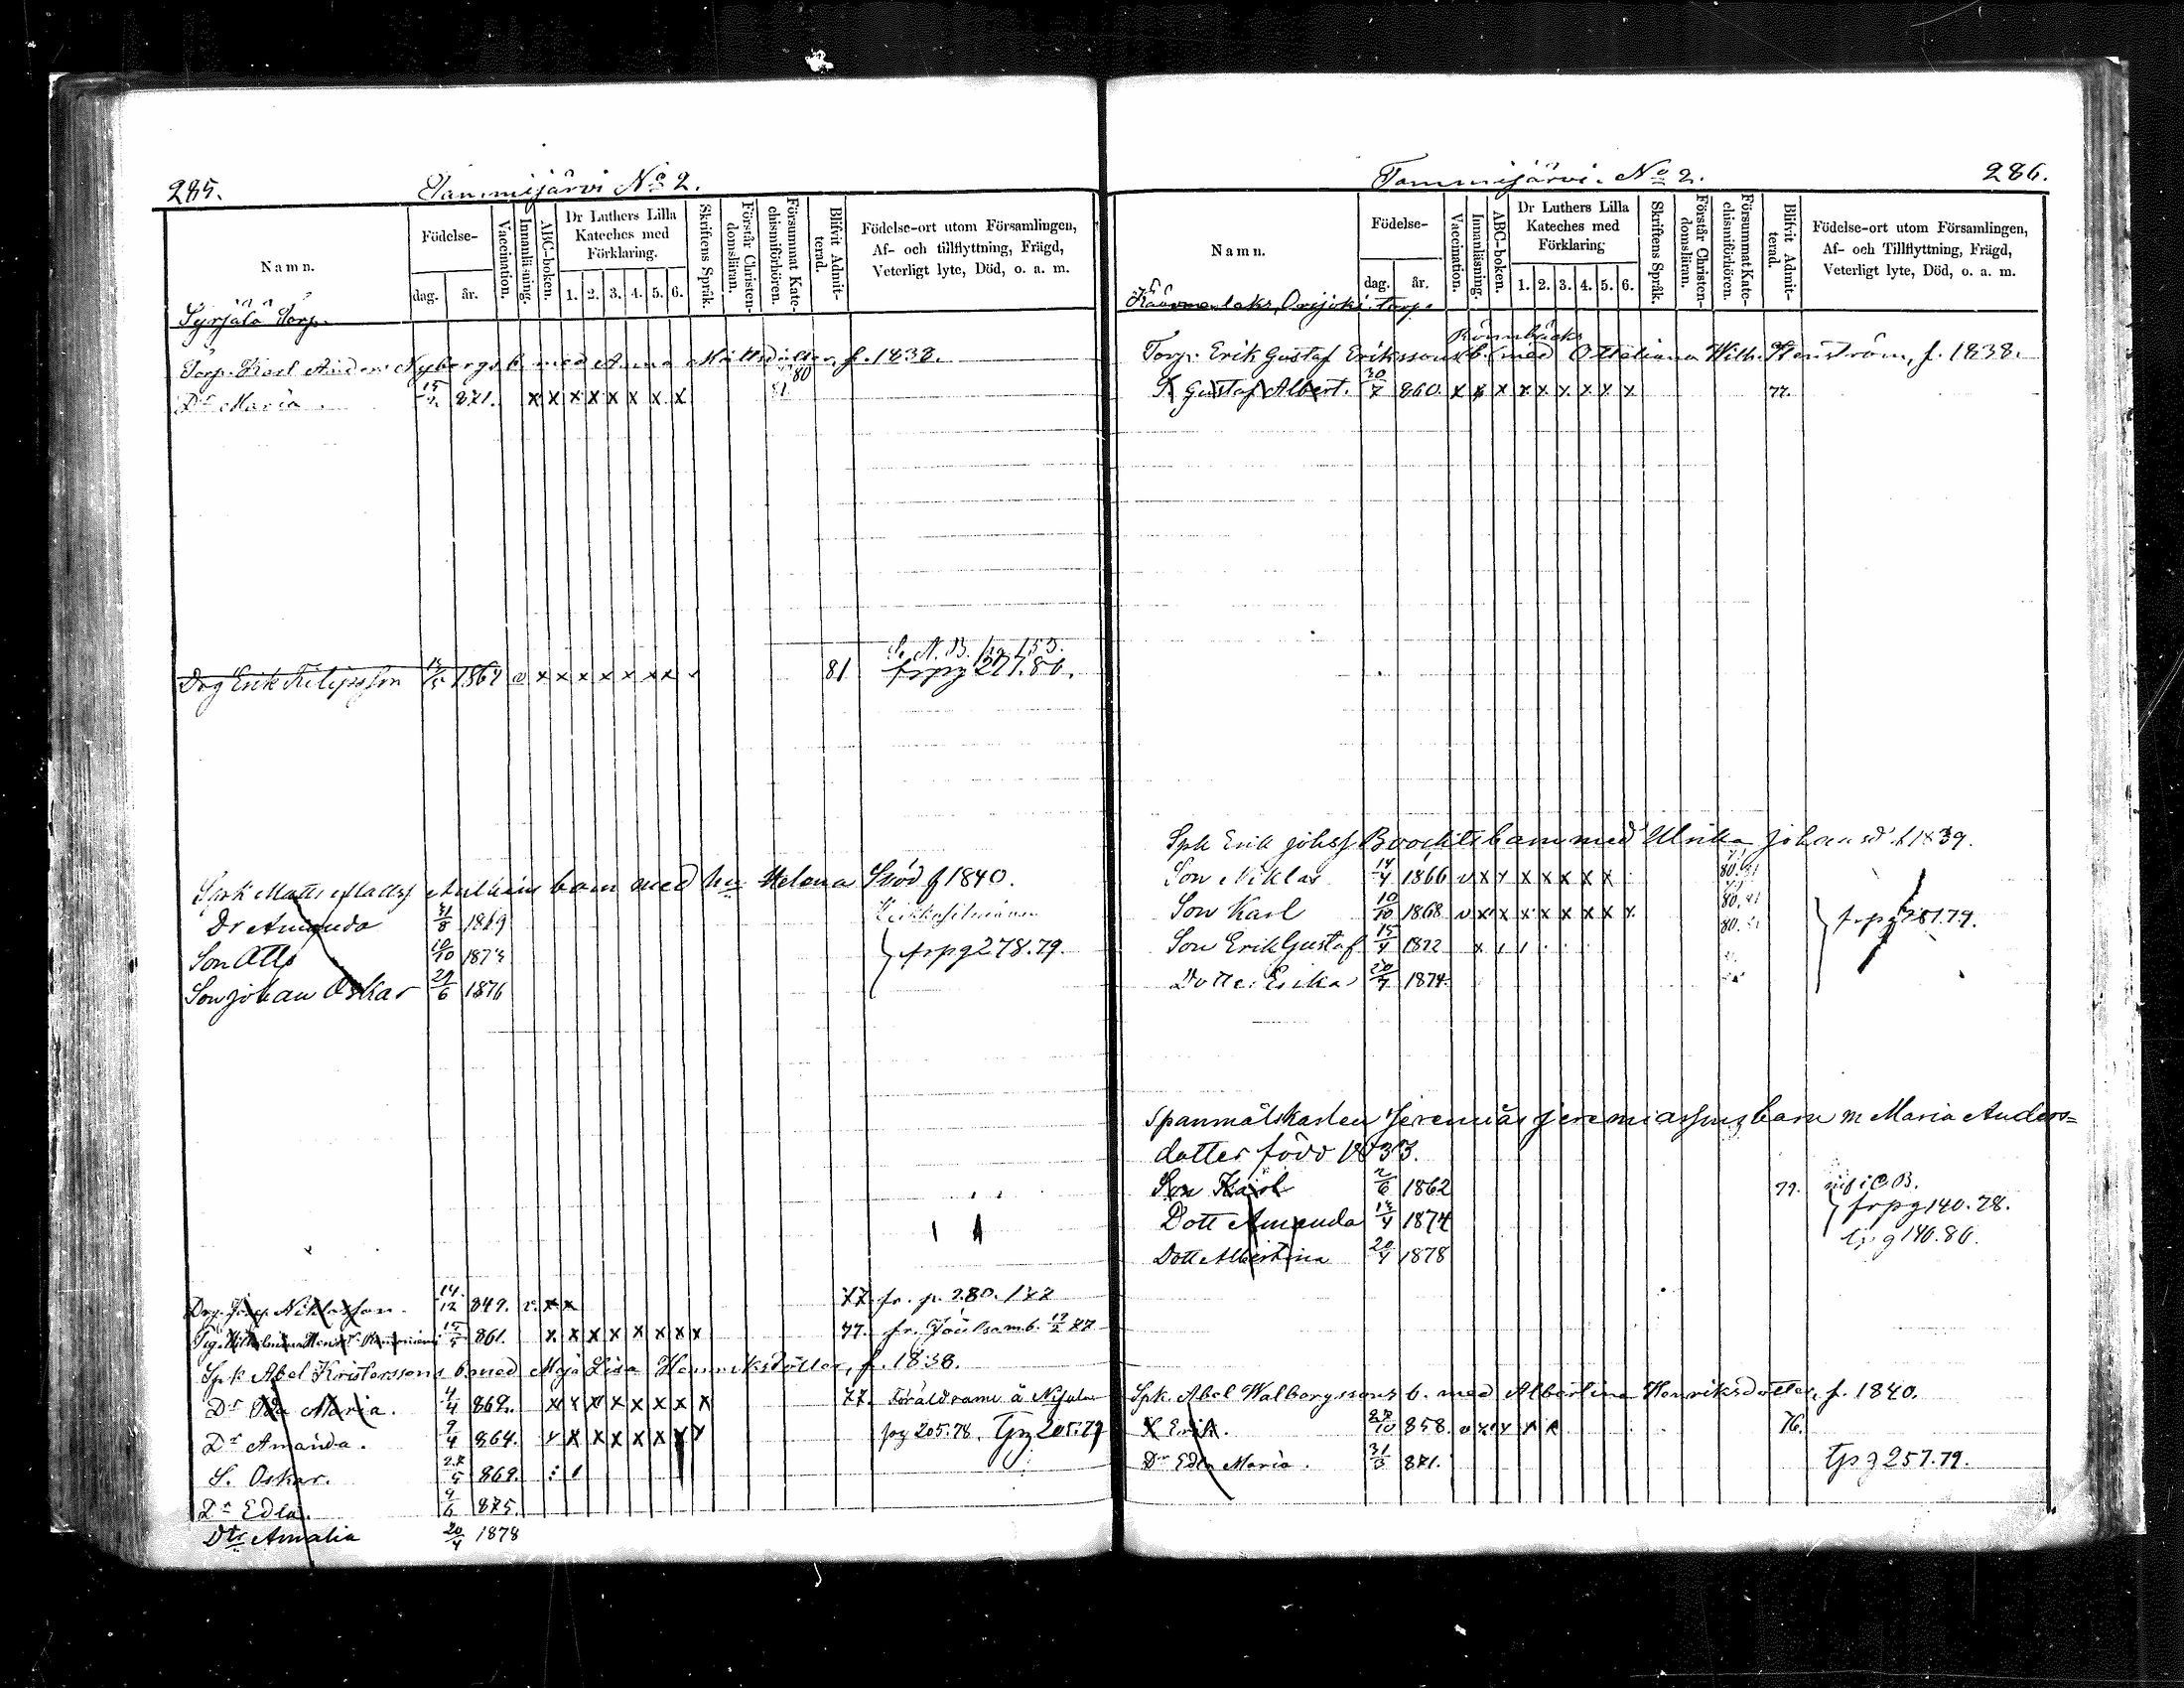 285.
Tammijärvi No 2.
Namn.
Födelse-
dag. år.
Vaccination.
Innanläsning.
ABC-boken.
Dr Luthers Lilla Kateches med Förklaring.
1. 2. 3. 4. 5. 6.
Skriftens Språk.
Förstår Christendomsläran.
Försummat Katechismiförhören.
Blifvit Admitterad.
Födelse-ort utom Församlingen,
Af- och tillflyttning, Frägd,
Veterligt lyte, Död, o. a. m.
Syrjälä Torp.
Torp. Karl Anders Nybergs b. med Anna Mattsdotter, f. 1838.
Dr Maria. 15 871. x x x x x x x x 80 81.
S. A. B. pg 153.
Drg Erik Filipsson 1864 v x x x x x x x 81 frpg 277.80.
Spk Matts Mattss barn med hu Helena f 1840.
Dr Amanda 31/8 1869
Son Otto 10/10 1873 } frpg 278.79.
Son Johan Oskar 29/6 1876
Drg. Niklasson. 14/12 849. v. x x 77. fr. p. 280. 1
861. x x x x x x x x 77. fr.
Spk Abel Kristerssons b med Maja Lisa Henriksdotter, f. 1838.
Dr Ida Maria. 4/4 862. x x x x x x x x 77. Föräldrarne å
Dr Amanda. 9/4 864. x x x x x x x x pg 205.78. Tpg 205.79
S. Oskar. 869.
Dr Edla. 9/6 875.
Dtr Amalia 20/4 1878
286.
Tammijärvi. No 2.
Namn.
Födelse-
dag. år.
Vaccination.
Innanläsning.
ABC-boken.
Dr Luthers Lilla Kateches med Förklaring
1. 2. 3. 4. 5. 6.
Skriftens Språk.
Förstår Christendomsläran.
Försummat Katechismiförhören.
Blifvit Admitterad.
Födelse-ort utom Församlingen,
Af- och Tillflyttning, Frägd,
Veterligt lyte, Död, o. a. m.
Orijoki torp.
Rönnbäcks
Torp. Erik Gustaf Erikssons b. med Ottiliana Wilh. Stenström, f. 1838.
S. Gustaf Albert. 30/7 860. x x x x x x x x x 77.
Spk Erik Johss barn med Ulrika Johansd f 1839.
Son Niklas 14/4 1866 v x x x x x x x 80.81
Son Karl 10/10 1868 v x x x x x x x x 80.81 } frpg 281.79.
Son Erik Gustaf 15/4 1872 x 80.81
Dotter Erika 20/7 1874.
Spanmålskarlen Jeremias Jeremiassons barn m Maria Anders=
dotter född 1833.
Son Karl 2/6 1862 79. inf i C. B.
Dott Amanda 14/4 1874 } frpg 140.78.
Dott Albertina 20/4 1878 tpg 140.80.
Spk. Abel Walborgssons b. med Albertina Henriksdotter, f. 1840.
S. Erik. 858. v x x x x 76.
Dr Edla Maria. 31/3 871. tpg 257.79.